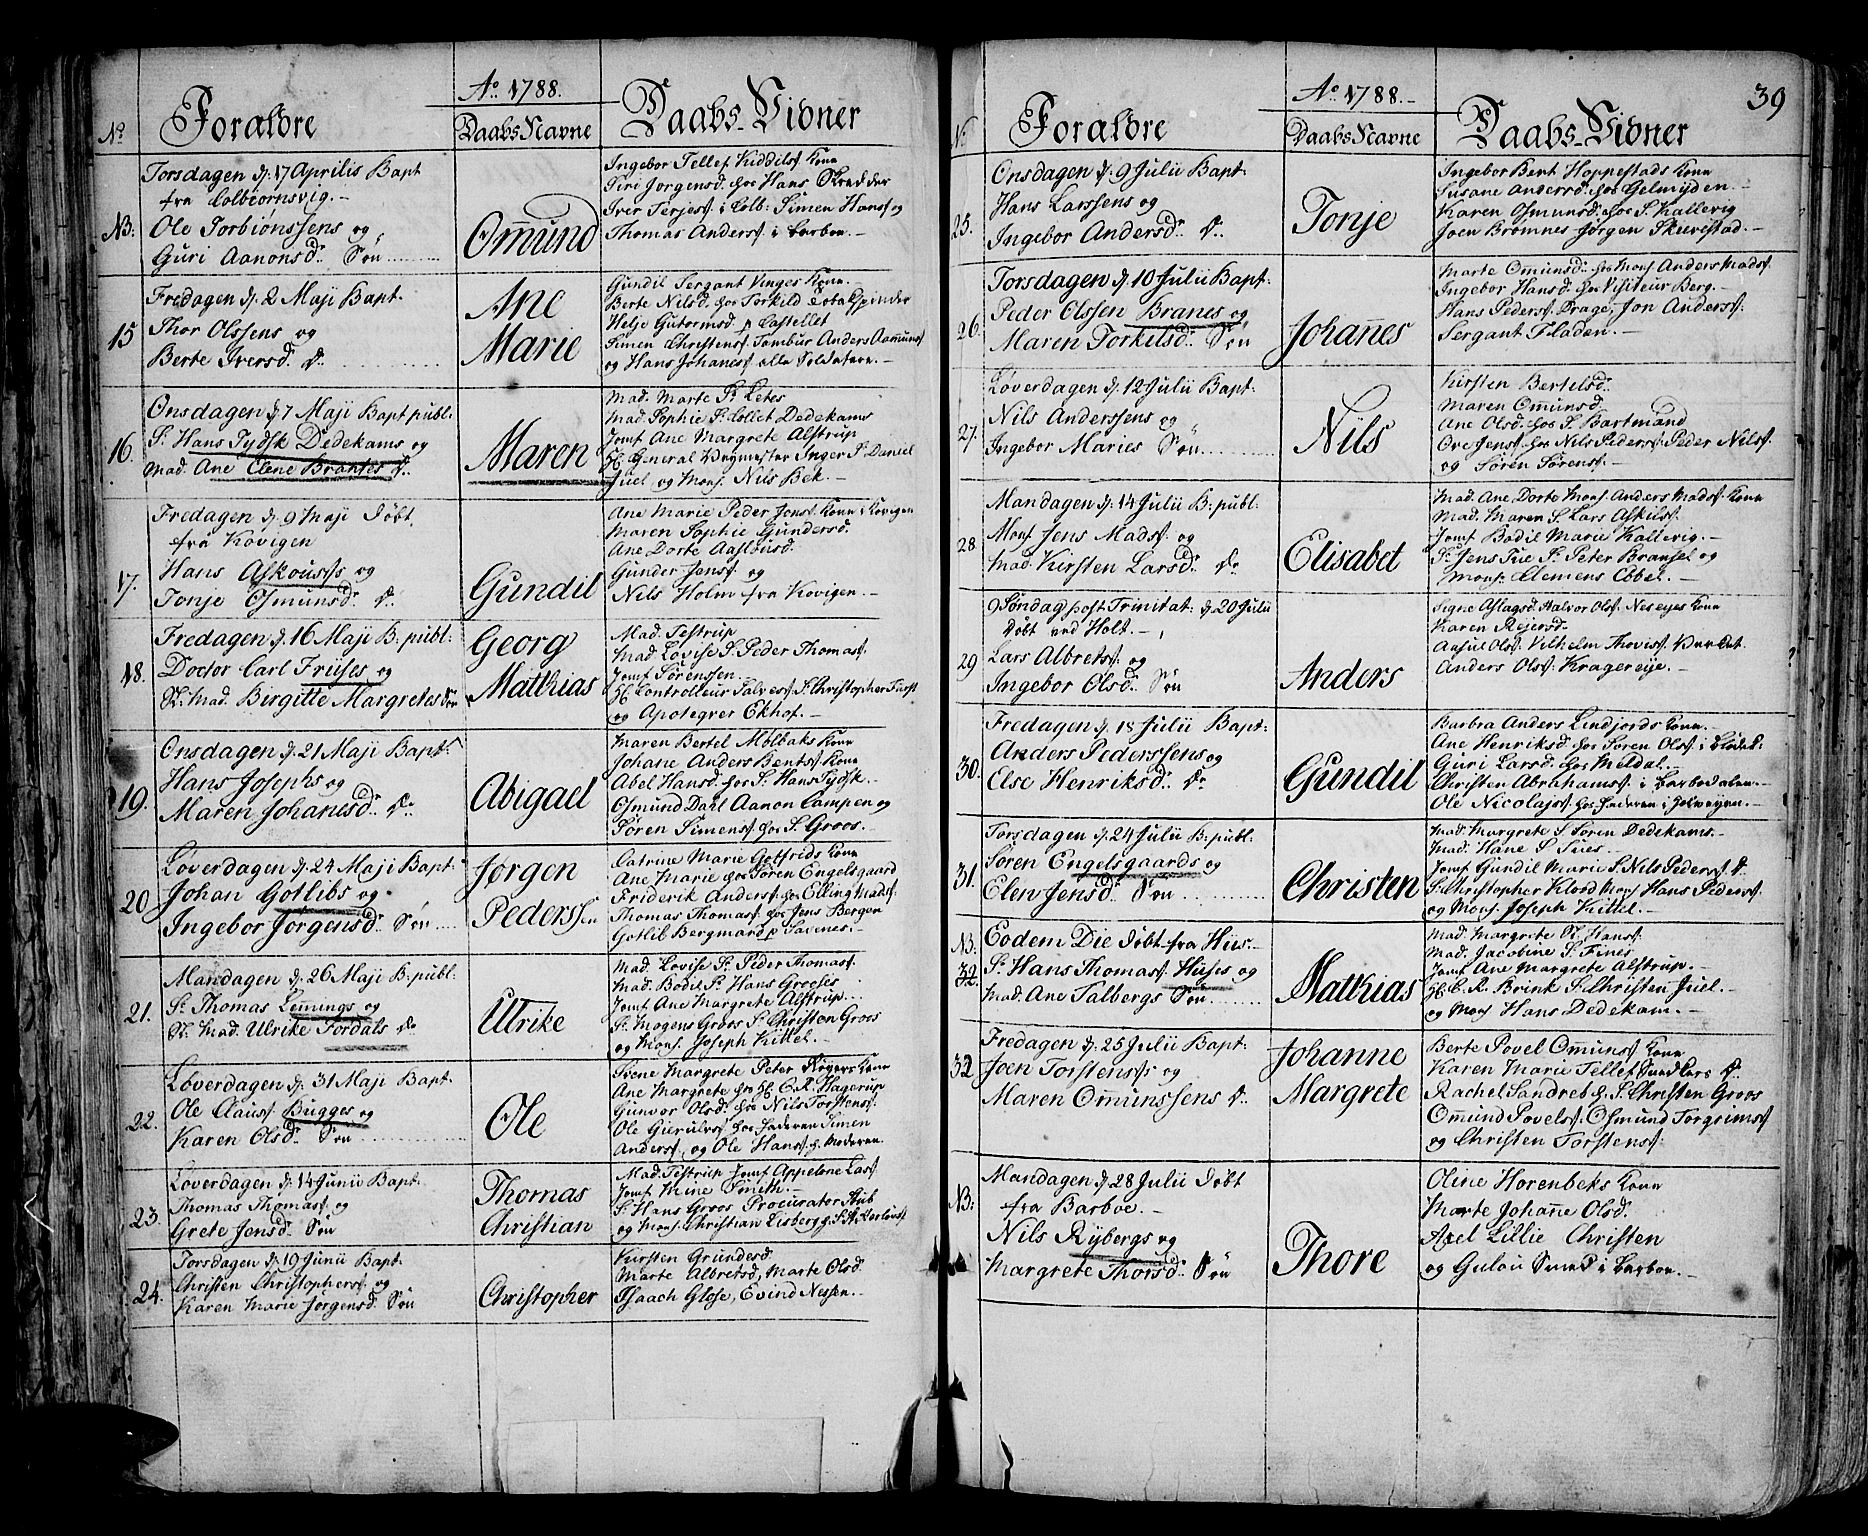 Ao. 1788.
No. Forældre Daabs Navne Daabs-Vidner
Torsdagen d: 17 Aprilis Bapt
fra Colbiørnsvig.-
NB: Ole Torbiönssens og
Guri Aanonsd: Søn
Omund
Ingebor Tellef Kiddilss. Kone
Siri Jorgensd. hos Hans Skredder
Iver Terjess. i Colb: Simen Hanss. og
Thomas Anderss. i Barboe.-
Fredagen d: 2 Maji Bapt.
15 Thor Olssens og
Berte Iversd. D.
Ane
Marie
Gundil Sergant Vinges Kone.
Berte Nilsd. hos Torkild Tobakspinder
Helje Gutormsd. p Castellet
Simen Christenss. Tambur Anders Aamunss.
og Hans Johaness. alle Soldatere.-
Onsdagen d: 7 Maji Bapt publ:
16. Sr. Hans Tydsk Dedekams og
Mad. Ane Elene Brantes D.
Maren
Mad. Marte Sr. Letes
Mad Sophie Sr. Collet Dedekams
Jomf Ane Margrete Alstrup
Hr. General Vejmester Inger Sr. Daniel
Juel og Mons. Nils Bek.-
Fredagen d: 9 Maji Døbt
fra Kovigen
17. Hans Askouss og
Tonje Osmunsd. D.
Gundil
Ane Marie Peder Jenss. Kone i Kovigen
Maren Sophie Gundersd.
Ane Dorte Aaslousd.
Gunder Jenss. og
Nils Holm fra Kovigen.-
Fredagen d: 16 Maji B. publ:
18. Doctor Carl Frises og
Mad. Birgitte Margretes Søn
Georg
Matthias
Mad. Testrup
Mad. Lovise Sr. Peder Thomass.
Jomf Sörenssen.
Hr. Controlleur Talvess Sr. Christopher Fürst
og Apoteqver Ekhof.-
Onsdagen d: 21 Maji Bapt:
19. Hans Josephs og
Maren Johanesd. D.
Abigael
Maren Bertel Molbaks Kone
Johane Anders Bentss. Kone
Abel Hansd. hos Sr. Hans Tydsk.-
Osmund Dahl Aanon Campen og
Søren Simenss. hos Sr. Groos.-
Løverdagen d: 24 Maji Bapt:
20 Johan Gotlibs og
Ingebor Jørgensd: Søn
Jørgen
Pederssen
Catrine Marie Gotfrids Kone
Ane Marie hos Søren Engelsgaard
Friderik Anderss. hos Elling Madss.
Thomas Thomass. hos Jens Bergen
Gotlib Bergman p Savnes.-
Mandagen d: 26 Maji B: publ.
21. Sr. Thomas Lemings og
Mad. Ulrike Tordals D.
Ulrike
Mad. Lovise Sr. Peder Thomass.
Mad. Bodil Sr. Hans Grooses
Jomf Ane Margrete Alstrup.
Sr. Mogens Groos Sr. Christen Groos
og Mons. Joseph Kittel.-
Løverdagen d: 31 Maji Bapt.
22. Ole Clauss. Bugges og
Karen Olsd. Søn
Ole
Svene Margrete Peter Røyers Kone
Ane Margrete hos Hr. C. R. Hagerup
Gunvor Olsd. hos Nils Torstenss.
Ole Gierulvss hos Faderen Simen
Anderss. og Ole Hanss. h. Moderen.
Løverdagen d: 14 Junii Bapt.
23. Thomas Thomass. og
Grete Jensd. Søn
Thomas
Christian
Mad. Testrup Jomf Appelone Lass.
Jomf Mine Smith.-
Sr. Hans Groos Procurator Stub
og Mons. Christian Lisberg
Torsdagen d: 19 Junii Bapt.
24. Christen Christopherss. og
Karen Marie Jørgensd. Søn
Christopher
Kirsten Grundesd.
Marte Albretsd, Marte Olsd.
Isaach Glose, Evind Nessen.-
39
Ao. 1788.-
No. Forældre Daabs Navne Daabs-Vidner
Onsdagen d: 9 Julii Bapt:
25. Hans Larssens og
Ingebor Andersd. D.
Tonje
Ingebor Bent Hoppestads Kone
Susane Andersd. hos Gelmyden.-
Karen Osmunsd. hos S. Kallevig
Joen Bromnes Jørgen Skuvestad.-
Torsdagen d: 10 Julii Bapt:
26. Peder Olssen Branes og
Maren Torkilsd. Søn
Johannes
Marte Omunsd. hos Mons. Anders Madss.
Ingebor Hansd. hos Visiteur Berg.-
Hans Pederss. Drage, Jon Anderss.
Sergant Fladen.-
Løverdagen d: 12 Julii Bapt:
27. Nils Anderssens og
Ingebor Maries Søn
Nils
Kirsten Bertelsd.
Maren Omunsd
Ane Olsd. hos S. Bartmand
Ove Jenss. hos Nils Pederss. Peder Nilss.
og Søren Sørenss.-
Mandagen d: 14 Julii B: publ:
28. Mons. Jens Madss. og
Mad. Kirsten Larsd. D.
Elisabet
Mad. Ane Dorte Mons. Anders Madss. Kone
Mad. Maren S. Lars Askilss.
Jomf Bodil Marie Kallevig.-
Sr. Jens Sue Sr. Peter Bransel og
Mons. Clemens Ebbel.-
9 Søndag post Trinitat: d: 20 Julii
Døbt ved Holt.-
29 Lars Albretss. og
Ingebor Olsd. Søn
Anders
Signe Aslagsd. Halvor Olss. Neseyes Kone
Karen Rejersd.
Aasul Olss. Vilhelm Thoviss.
Anders Olss. Kragereje.-
Fredagen d: 18 Julii Bapt:
30. Anders Pederssens og
Else Henriksd. D.
Gundil
Barbra Anders Lindjords Kone.
Ane Henriksd. hos Søren Olss. i Blødek:
Guri Larsd. hos Meldal.-
Christen Abrahamss. i Barbodalen.-
Ole Nicolajss. hos Faderen i Jolvejen.-
Torsdagen d: 24 Julii B: publ.
31. Søren Engelsgaards og
Elen Jensd. Søn
Christen
Mad. Margrete S. Søren Dedekams.-
Mad. Hane S. Sues.-
Jomf Gundil Marie S. Nils Pederss D.
Sr. Christopher Klovd Mons. Hans Pederss.
og Mons. Joseph Kittel.-
NB. Eodem Die Døbt fra Hiis.-
32. Sr. Hans Thomass. Huses og
Mad. Ane Talbergs Søn.
Matthias
Mad. Margrete Hanss.
Mad. Jacobine S. Fines
Jomf Ane Margrete Alstrup.-
Hr. C. R. Brink Sr. Christen Juel.-
og Mons. Hans Dedekam.-
Fredagen d: 25 Julii Bapt:
32 Joen Torstenss og
Maren Omunssens D.
Johanne
Margrete
Berte Povel Omunss. Kone
Karen Marie Tellef Sundlars D.
Rachel Sandret h. S. Christen Groos
Omund Povelss. Osmund Torgrimss.
og Christen Torstenss.
Mandagen d: 28 Julii Døbt
NB: fra Barboe.-
Nils Rybergs og
Margrete Thorsd. Søn
Thore
Oline Horenbeks Kone
Marte Johane Olsd.
Axel Lillie Christen
og Gulou Sund i Barboe.-